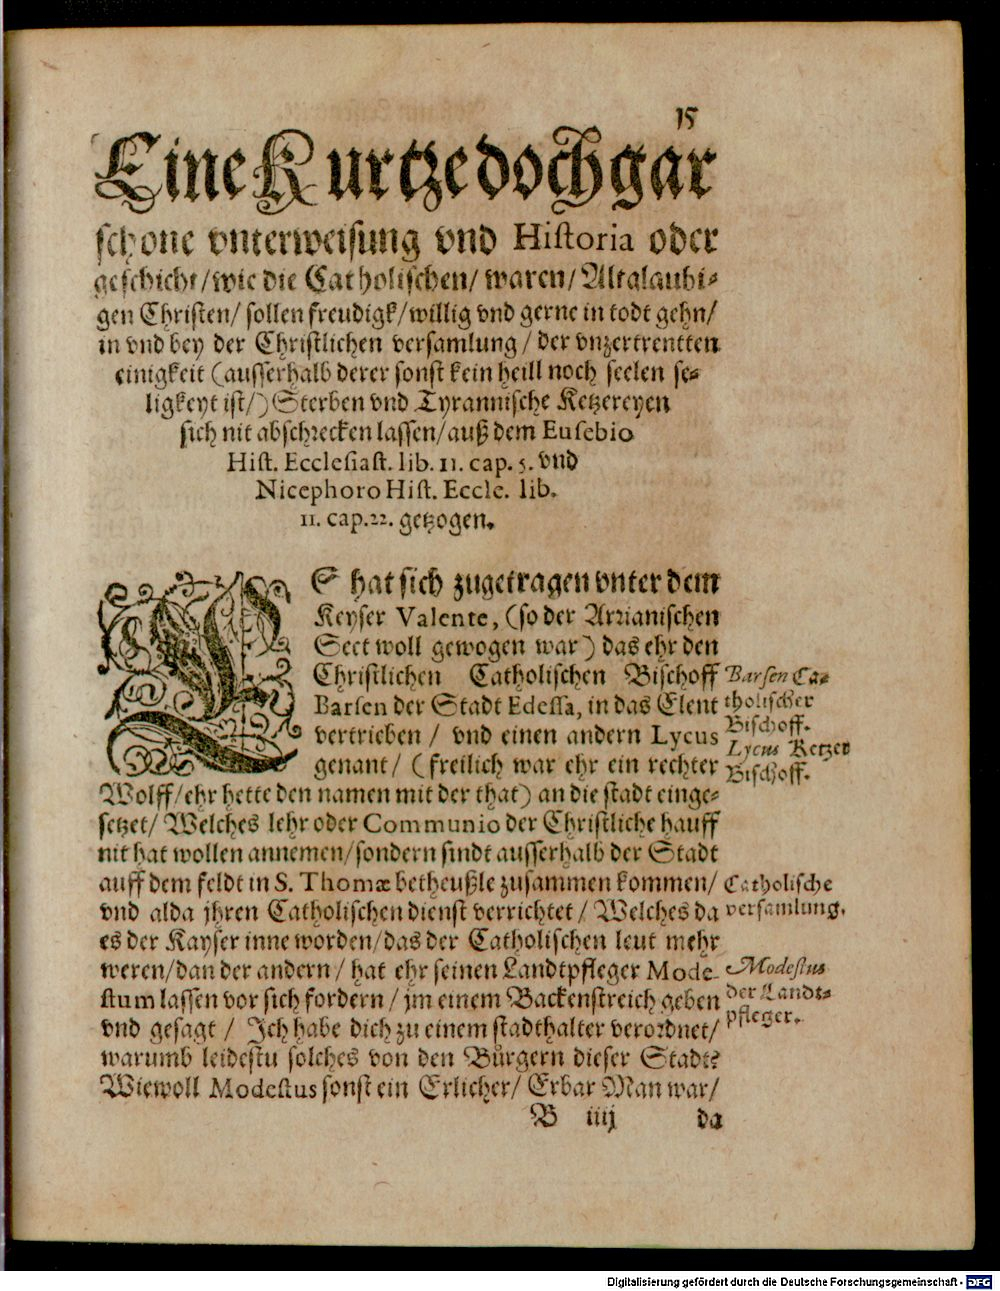 15
Eine Kurtze doch gar
schone vnterweisung vnd Historia oder
geschicht/wie die Catholischen/ waren/ Altglaubi-
gen Christen/ sollen freudigk/willig vnd gerne in todt gehn/
in vnd bey der Christlichen versamlung/ der vnzertrentten
einigkeit (ausserhalb derer sonst kein heill noch seelen se-
ligkeyt ist/) Sterben vnd Tyrannische Ketzereyen
sich nit abschrecken lassen/auß dem Eusebio
Hist. Ecclesiast. lib. 11. cap. 5. vnd
Nicephoro Hist. Eccle. lib.
11. cap. 22. getzogen.
ES hat sich zugetragen vnter dem
Keyser Valente, (so der Arrianischen
Sect woll gewogen war) das ehr den
Christlichen Catholischen Bischoff
Barsen der Stadt Edessa, in das Elent
vertrieben / vnd einen andern Lycus
genant/ (freilich war ehr ein rechter
Wolff/ehr hette den namen mit der that) an die stadt einge-
setzet/ Welches lehr oder Communio der Christliche hauff
nit hat wollen annemen/sondern sindt ausserhalb der Stadt
auff dem feldt in S. Thomæ betheußle zusammen kommen/
vnd alda jhren Catholischen dienst verrichtet/ Welches da
es der Kayser inne worden/das der Catholischen leut mehr
weren/dan der andern/ hat ehr seinen Landtpfleger Mode-
stum lassen vor sich fordern/ jm einem Backenstreich geben
vnd gesagt / Jch habe dich zu einem stadthalter verordnet/
warumb leidestu solches von den Bůrgern dieser Stadt?
Wiewoll Modestus sonst ein Erlicher/ Erbar Man war/
B iiij da
Barsen Ca-
tholischer
Bischoff.
Lycus Ketzer
Bischoff.
Catholische
versamlung.
Modestus
der Landt-
pfleger.
Digitalisierung gefördert durch die Deutsche Forschungsgemeinschaft - DFG